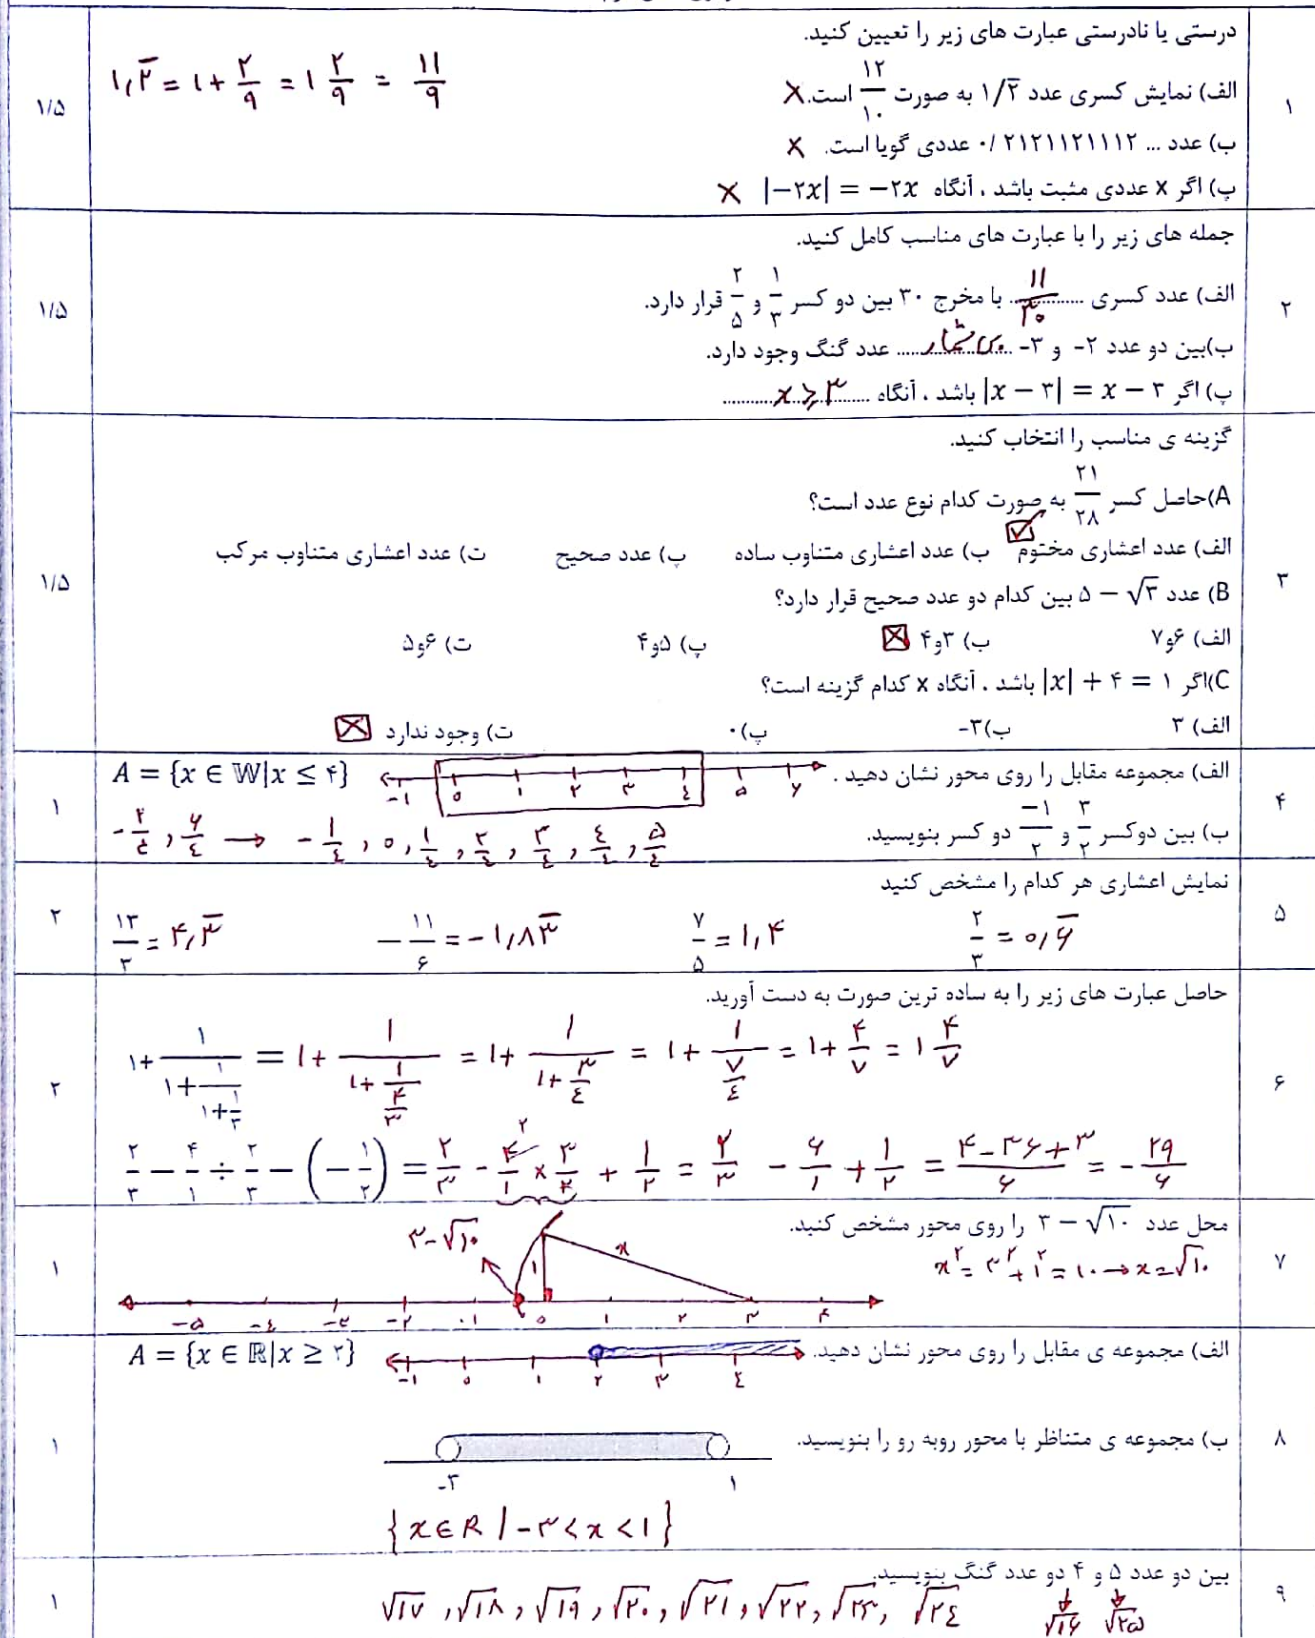 ۱
درستی یا نادرستی عبارت های زیر را تعیین کنید.
۱/۵
الف) نمایش کسری عدد ۱/۲̅ به صورت ۱۲/۱۰ است. ✗
۱,۲̅ = ۱ + ۲/۹ = ۱ ۲/۹ = ۱۱/۹
ب) عدد ... ۰/۲۱۲۱۱۲۱۱۱۲ عددی گویا است. ✗
پ) اگر x عددی مثبت باشد ، آنگاه |−۲x| = −۲x ✗
۲
جمله های زیر را با عبارت های مناسب کامل کنید.
۱/۵
الف) عدد کسری ...۱۱/۳۰... با مخرج ۳۰ بین دو کسر ۱/۳ و ۲/۵ قرار دارد.
ب)بین دو عدد ۲- و ۳- ...بی شمار... عدد گنگ وجود دارد.
پ) اگر |x − ۳| = x − ۳ باشد ، آنگاه ...x ⩾ ۳...
۳
گزینه ی مناسب را انتخاب کنید.
۱/۵
A)حاصل کسر ۲۱/۲۸ به صورت کدام نوع عدد است؟
الف) عدد اعشاری مختوم ☑ ب) عدد اعشاری متناوب ساده پ) عدد صحیح ت) عدد اعشاری متناوب مرکب
B) عدد ۵ − √۳ بین کدام دو عدد صحیح قرار دارد؟
الف) ۶و۷ ب) ۳و۴ ☒ پ) ۵و۴ ت) ۶و۵
C)اگر |x| + ۴ = ۱ باشد ، آنگاه x کدام گزینه است؟
الف) ۳ ب)۳- پ)۰ ت) وجود ندارد ☒
۴
الف) مجموعه مقابل را روی محور نشان دهید .
A = {x ∈ 𝕎|x ≤ ۴}
-۱ ۰ ۱ ۲ ۳ ٤ ۵ ۶
۱
ب) بین دوکسر ۳/۲ و −۱/۲ دو کسر بنویسید.
-۲/٤ , ۶/٤ → -۱/٤ , ۰ , ۱/٤ , ۲/٤ , ۳/٤ , ٤/٤ , ۵/٤
۵
نمایش اعشاری هر کدام را مشخص کنید
۲
۱۳/۳ = ۴,۳̅ −۱۱/۶ = -۱,۸۳̅ ۷/۵ = ۱,۴ ۲/۳ = ۰,۶̅
۶
حاصل عبارت های زیر را به ساده ترین صورت به دست آورید.
۲
۱+۱/(۱+۱/(۱+۱/۳)) = ۱+۱/(۱+۱/(۴/۳)) = ۱+۱/(۱+۳/٤) = ۱+۱/(۷/٤) = ۱+۴/۷ = ۱ ۴/۷
۲/۳ − ۴/۱ ÷ ۲/۳ − (−۱/۲) = ۲/۳ - ۴/۱ × ۳/۲ + ۱/۲ = ۲/۳ - ۶/۱ + ۱/۲ = (۴-۳۶+۳)/۶ = -۲۹/۶
۷
محل عدد ۳ − √۱۰ را روی محور مشخص کنید.
۱
x² = ۳² + ۱² = ۱۰ → x = √۱۰
۳-√۱۰
x
۱
-۵ -٤ -۳ -۲ -۱ ۰ ۱ ۲ ۳ ۴
۸
الف) مجموعه ی مقابل را روی محور نشان دهید.
A = {x ∈ ℝ|x ≥ ۲}
-۱ ۰ ۱ ۲ ۳ ٤
۱
ب) مجموعه ی متناظر با محور روبه رو را بنویسید.
-۳ ۱
{x ∈ R | -۳ < x < ۱}
۹
بین دو عدد ۵ و ۴ دو عدد گنگ بنویسید.
۱
√۱۶ √۲۵
√۱۷ , √۱۸ , √۱۹ , √۲۰ , √۲۱ , √۲۲ , √۲۳ , √۲٤